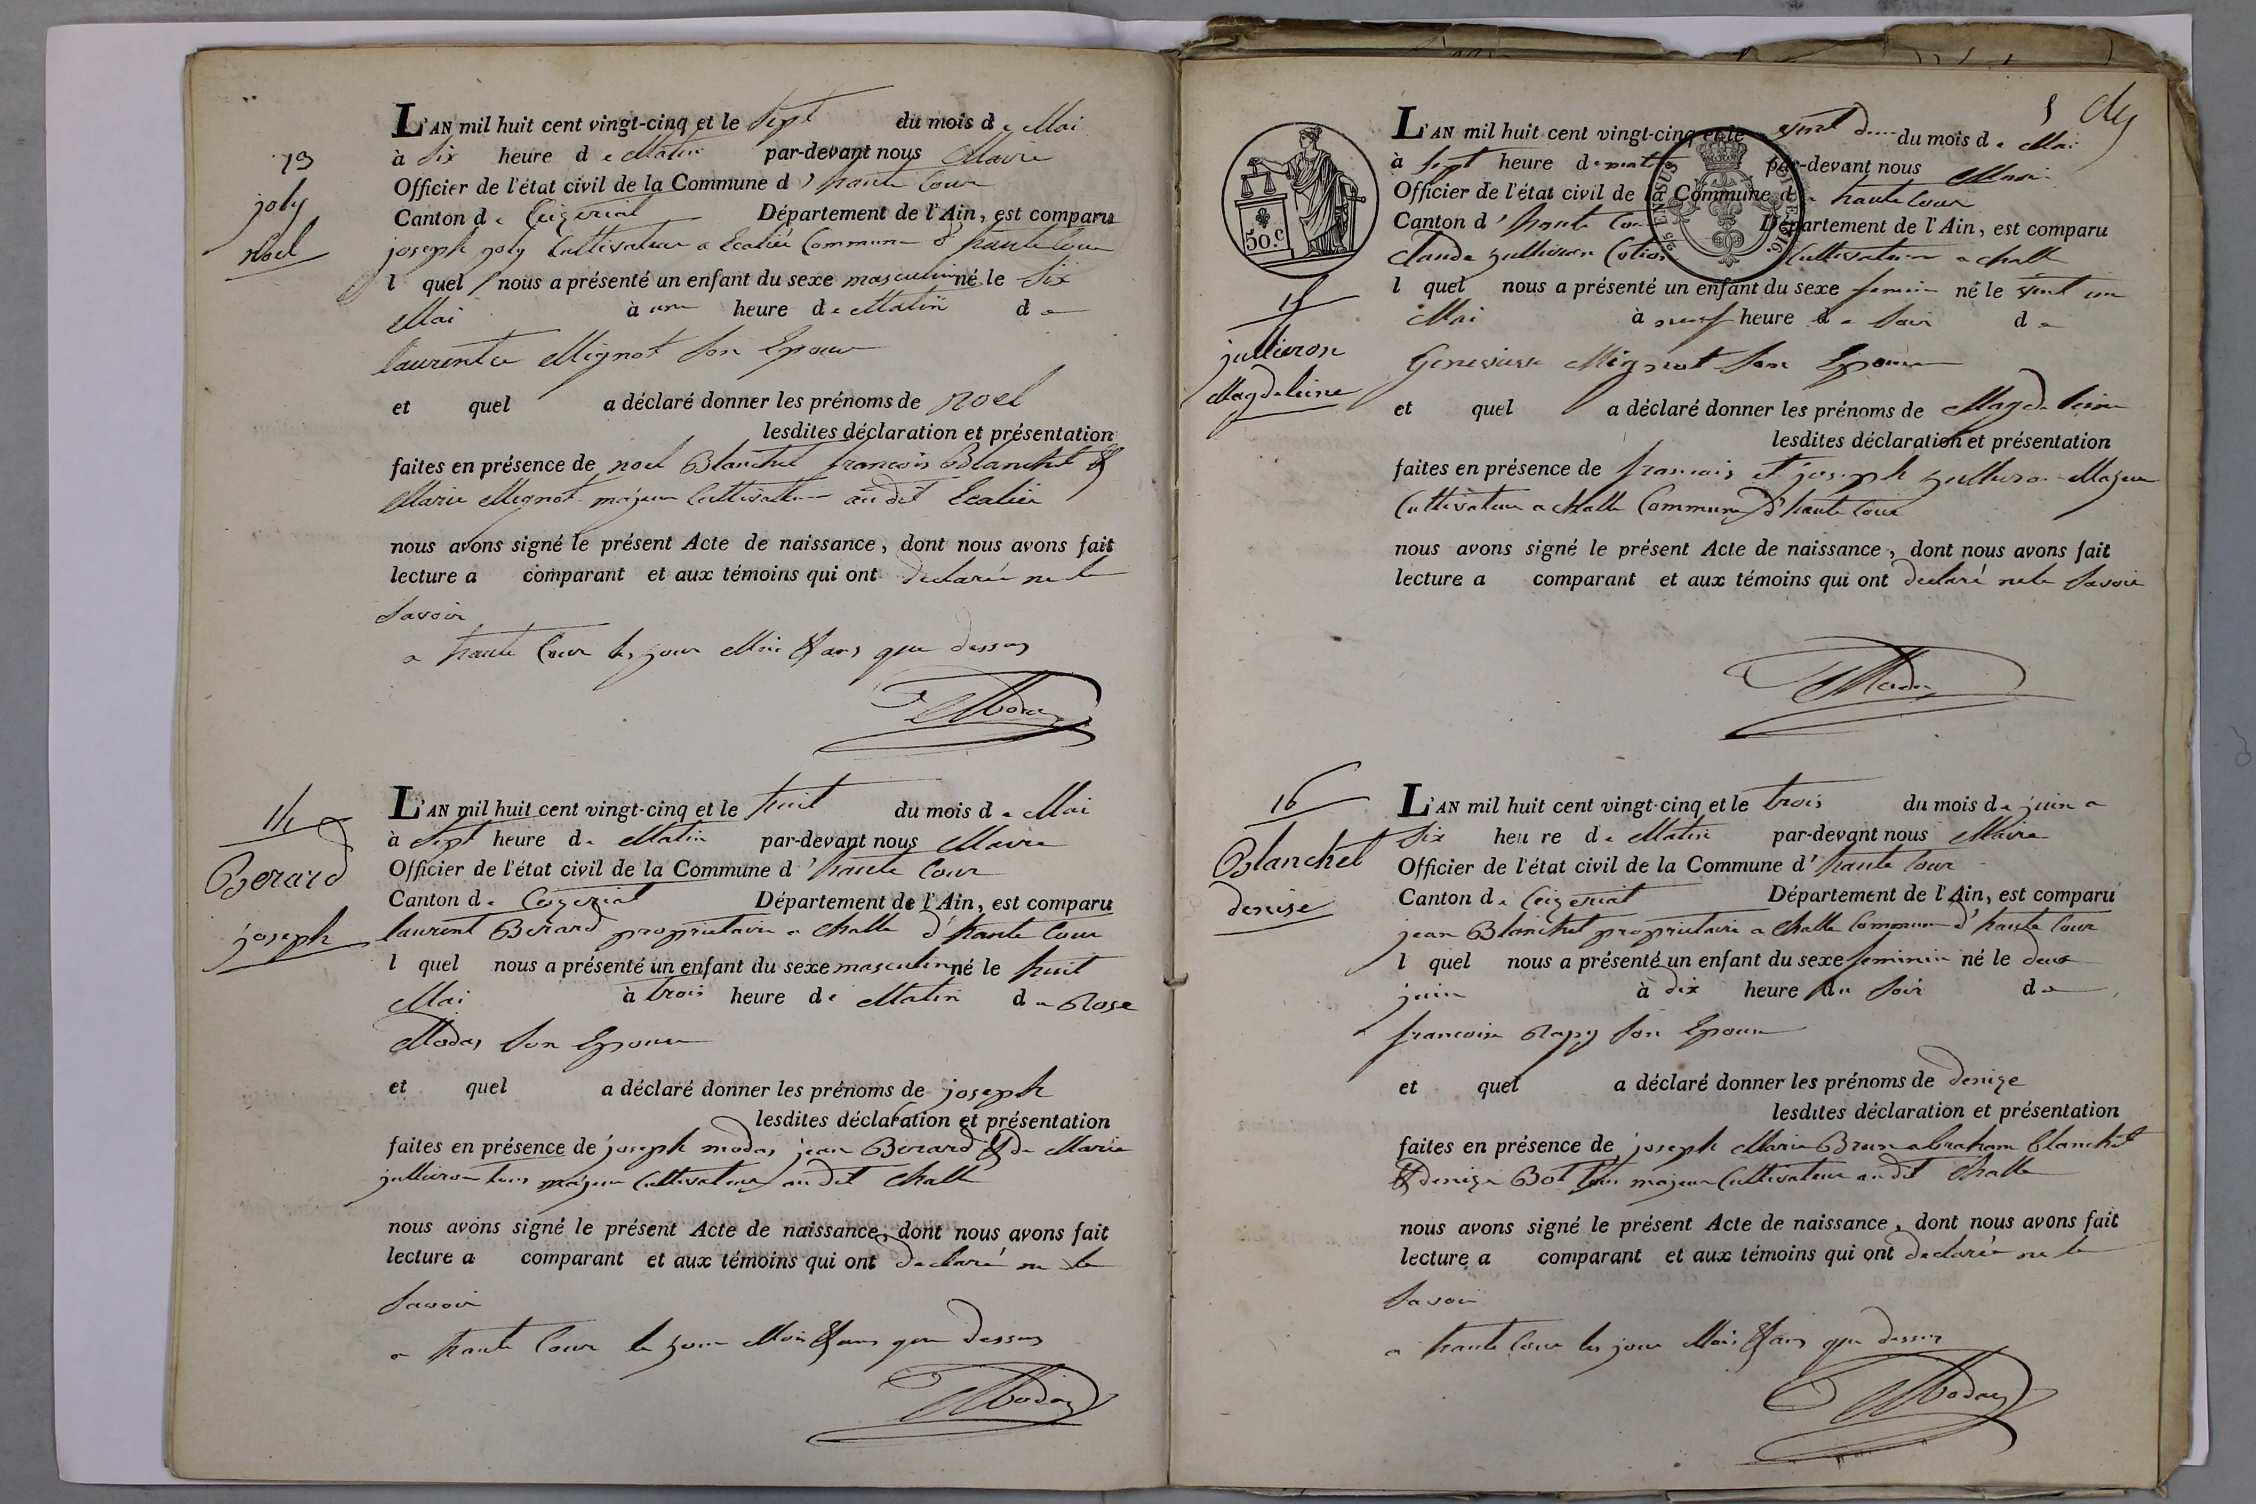 13
joly
noel
L'AN mil huit cent vingt-cinq et le Sept du mois de Mai
à Six heure de Matin par-devant nous Maire
Officier de l'état civil de la Commune d'haute Cour
Canton de Ceizeriat Département de l'Ain, est comparu
joseph joly Cultivateur a Ecalié Commune d'haute Cour
l quel nous a présenté un enfant du sexe masculin né le Six
Mai à une heure de Matin de
laurence Mignot Son Epouse
et quel a déclaré donner les prénoms de noel
lesdites déclaration et présentation
faites en présence de noel Blanchet francois Blanchet &
Marie Mignot majeur Cultivateur au dit Ecalié
nous avons signé le présent Acte de naissance, dont nous avons fait
lecture a comparant et aux témoins qui ont declaré ne le
Savoir
a haute Cour les jour Mois & ans que dessus
Modas
14
Berard
joseph
L'AN mil huit cent vingt-cinq et le huit du mois de Mai
à Sept heure de Matin par-devant nous Maire
Officier de l'état civil de la Commune d'haute Cour
Canton de Ceizeriat Département de l'Ain, est comparu
laurent Berard proprietaire a Challe d'haute Cour
l quel nous a présenté un enfant du sexe masculin né le huit
Mai à trois heure de Matin de Rose
Modas Son Epouse
et quel a déclaré donner les prénoms de joseph
lesdites déclaration et présentation
faites en présence de joseph modas jean Berard & de Marie
jullieron tous majeur Cultivateur au dit Challe
nous avons signé le présent Acte de naissance, dont nous avons fait
lecture a comparant et aux témoins qui ont declaré ne le
Savoir
a haute Cour le jour Mois & ans que dessus
Modas
5
50.c
15
jullieron
Magdeleine
L'AN mil huit cent vingt-cinq et le vint d... du mois de Mai
à Sept heure de matin par-devant nous Maire
Officier de l'état civil de la Commune d haute Cour
Canton d'haute Cour Département de l'Ain, est comparu
Claude jullieron Cultivateur a challe
l quel nous a présenté un enfant du sexe feminin né le vint un
Mai à neuf heure de Soir de
Genevieve Mignot Son Epouse
et quel a déclaré donner les prénoms de Magdeleine
lesdites déclaration et présentation
faites en présence de francois et joseph jullieron Majeur
Cultivateur a challe Commune d'haute Cour
nous avons signé le présent Acte de naissance, dont nous avons fait
lecture a comparant et aux témoins qui ont declaré ne le Savoir
Modas
16
Blanchet
denise
L'AN mil huit cent vingt-cinq et le trois du mois de juin a
Six heure de Matin par-devant nous Maire
Officier de l'état civil de la Commune d'haute Cour
Canton de Ceizeriat Département de l'Ain, est comparu
jean Blanchet proprietaire a Challe Commune d'haute Cour
l quel nous a présenté un enfant du sexe feminin né le deux
juin à dix heure du Soir de
francoise Rapy Son Epouse
et quel a déclaré donner les prénoms de denize
lesdites déclaration et présentation
faites en présence de joseph Marie Brun abraham blanchet
& denize Bot tous majeur Cultivateur au dit Challe
nous avons signé le présent Acte de naissance, dont nous avons fait
lecture a comparant et aux témoins qui ont declaré ne le
Savoir
a haute Cour les jour Mois & ans que dessus
Modas